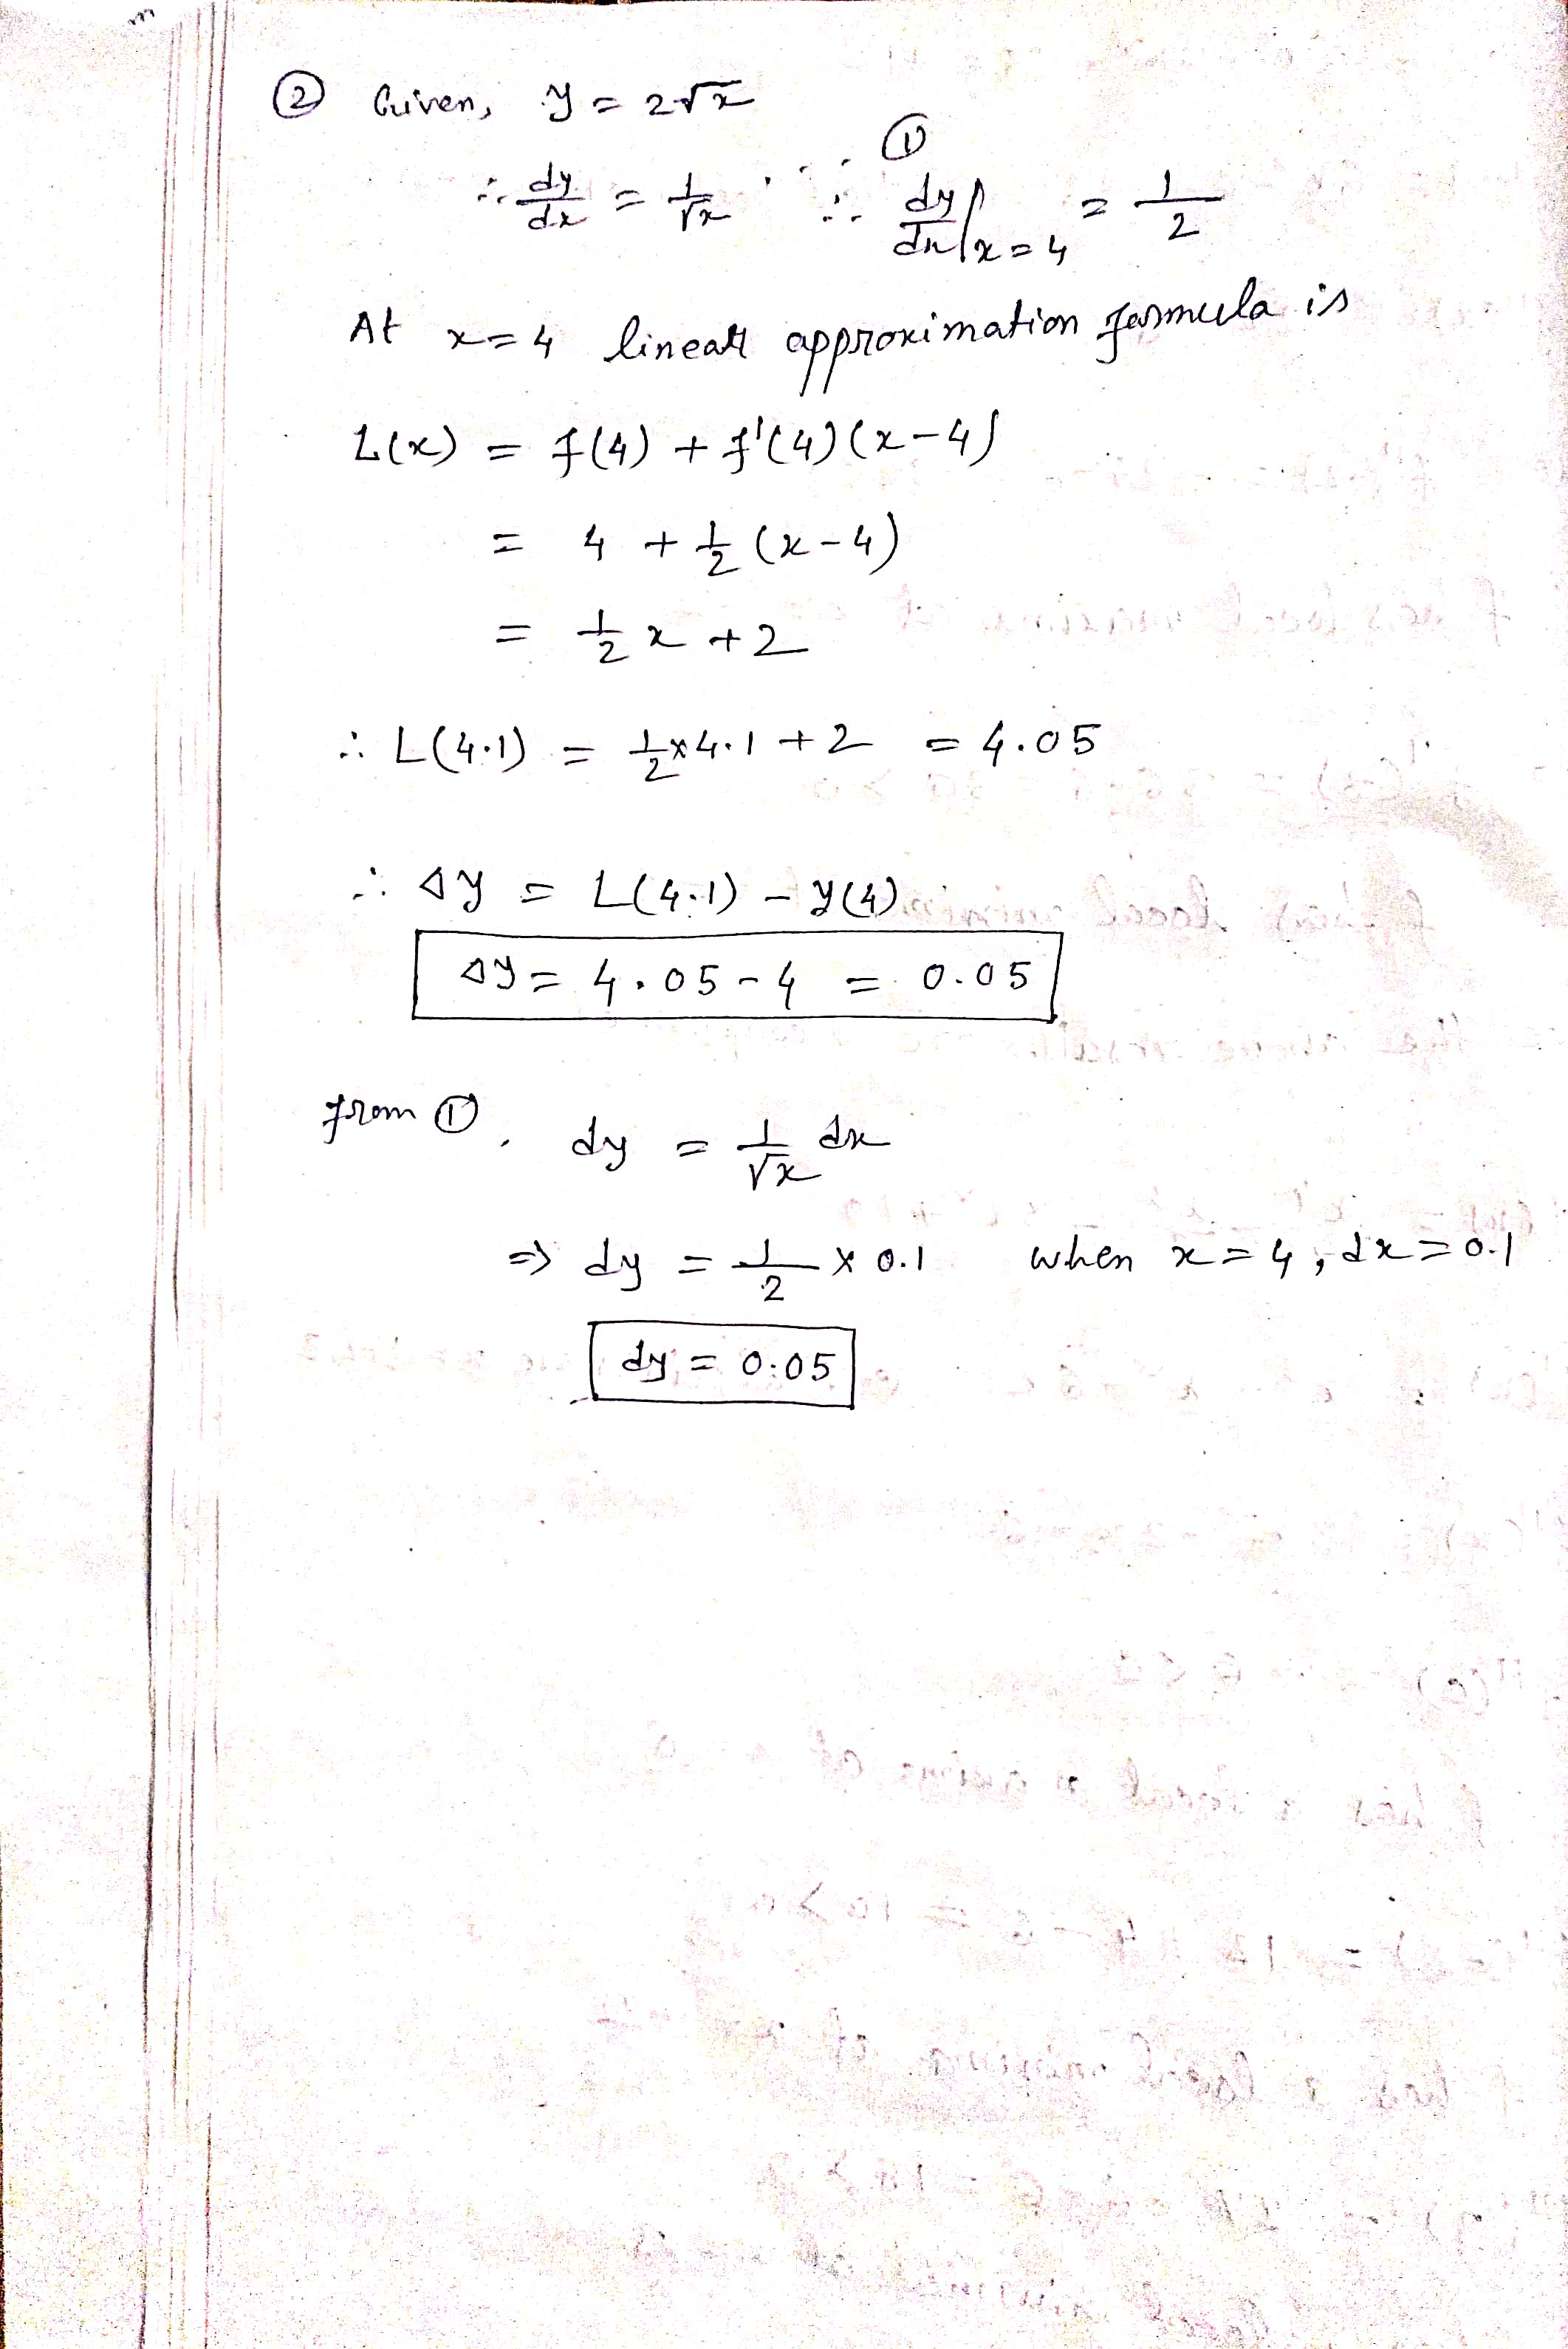 ② Given, y = 2√x
∴ dy/dx = 1/√x ... ① ∴ dy/dx|x=4 = 1/2
At x=4 linear approximation formula is
L(x) = f(4) + f'(4)(x-4)
= 4 + 1/2 (x-4)
= 1/2 x + 2
∴ L(4.1) = 1/2 × 4.1 + 2 = 4.05
∴ Δy = L(4.1) - y(4)
Δy = 4.05 - 4 = 0.05
from ①, dy = 1/√x dx
⇒ dy = 1/2 × 0.1 when x=4, dx=0.1
dy = 0.05